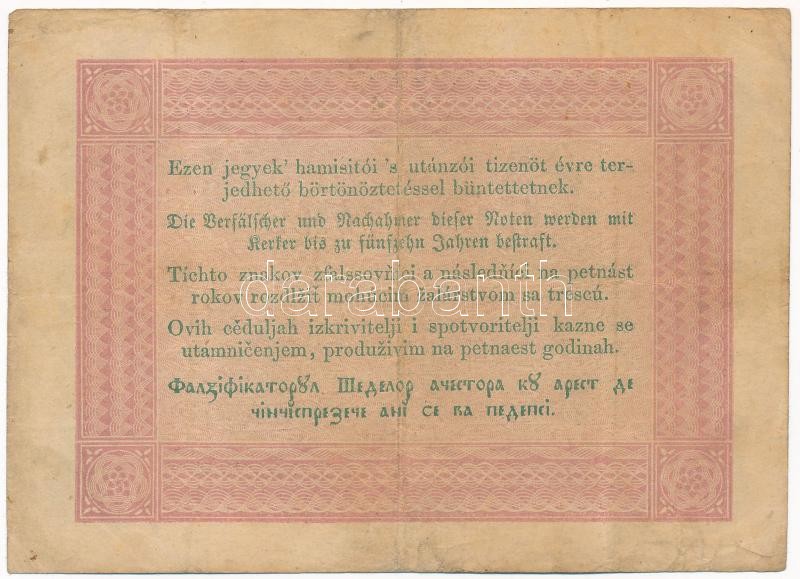 Ezen jegyek' hamisitói 's utánzói tizenöt évre ter-
jedhető börtönöztetéssel büntettetnek.
Die Verfälscher und Nachahmer dieser Noten werden mit
Kerker bis zu fünfzehn Jahren bestraft.
Tíchto znakov zfalssovňíci a následňíci na petnást
rokov rozdlžiť mohúcim žalárstvom sa trescú.
Ovih cěduljah izkrivitelji i spotvoritelji kazne se
utámničenjem, produživim na petnaest godinah.
Фалзіфікаторꙋл Шеделор ачестора кꙋ арест де
чінчіспрезече ані се ва педепсі.
darabanth